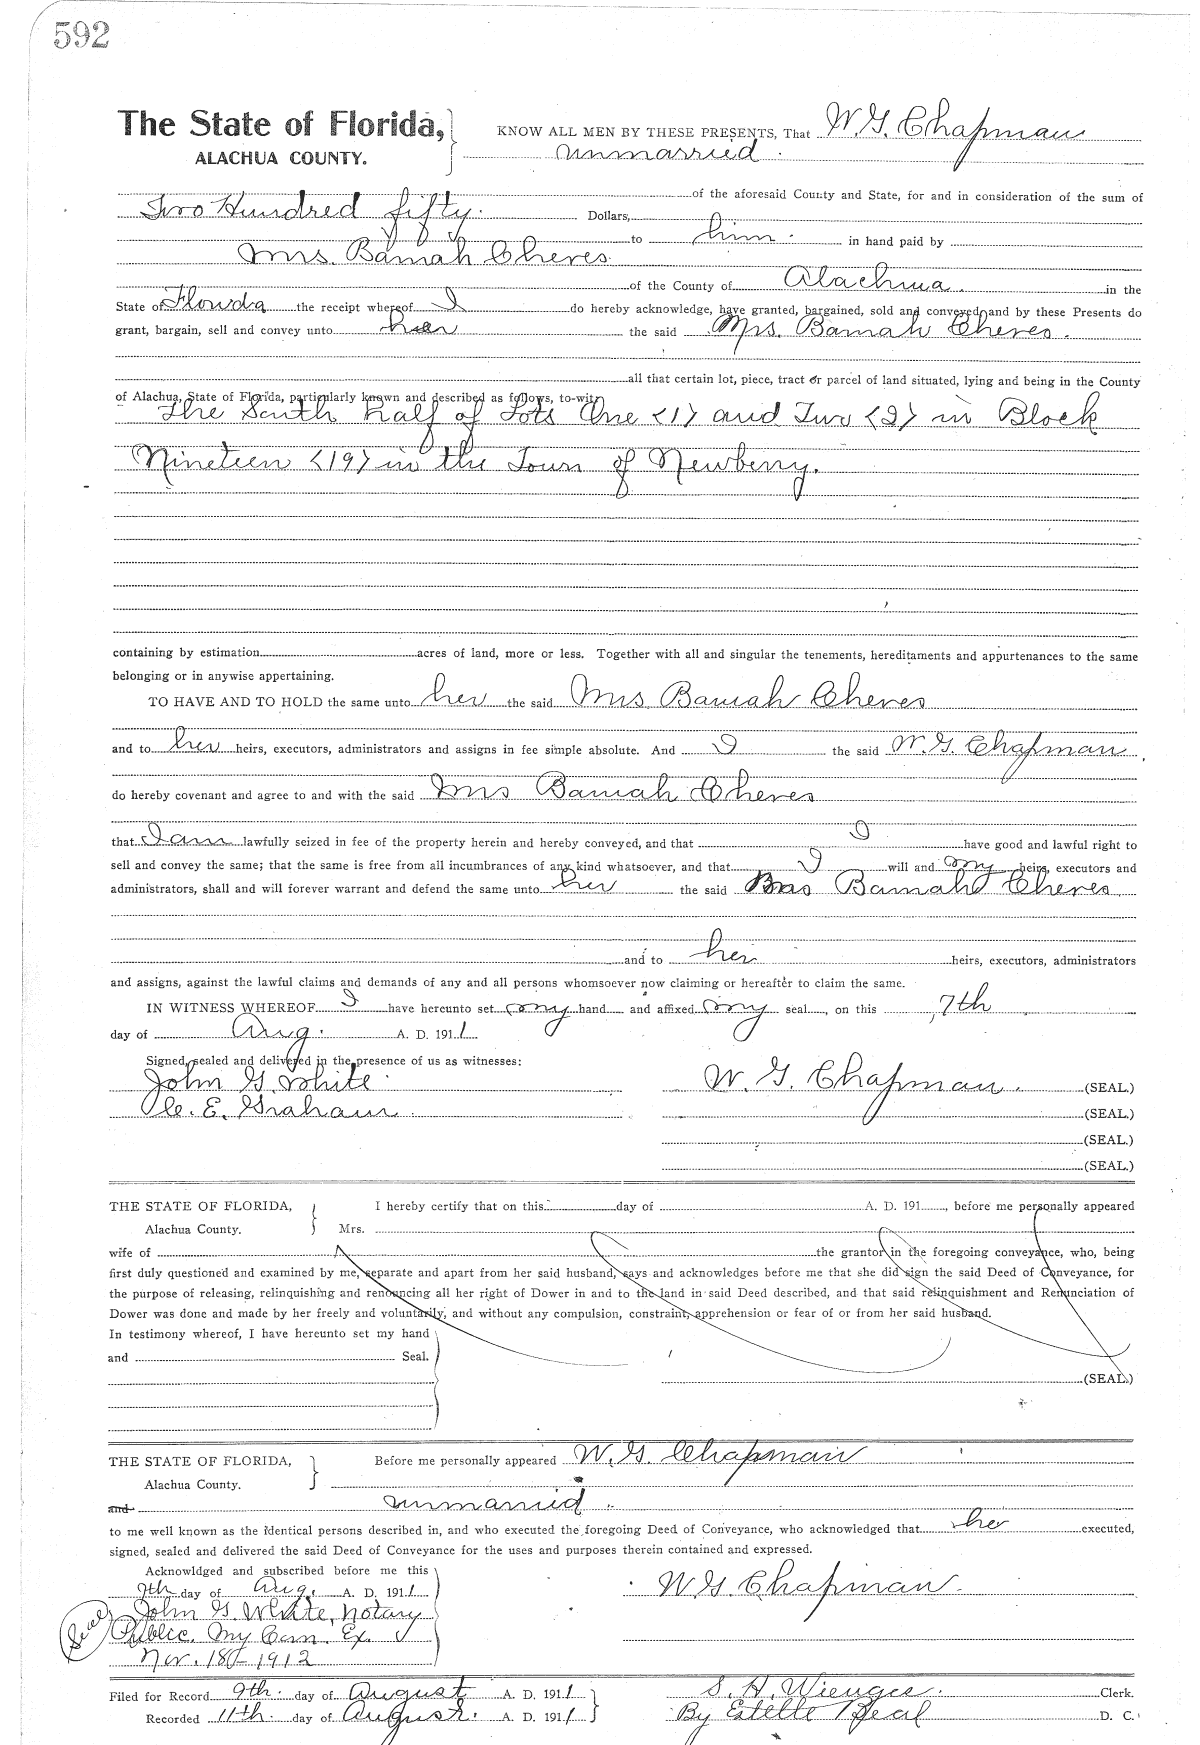 592
The State of Florida, KNOW ALL MEN BY THESE PRESENTS, That W. G. Chapman
ALACHUA COUNTY. unmarried.
of the aforesaid County and State, for and in consideration of the sum of
Two Hundred fifty. Dollars,
to him. in hand paid by
Mrs. Bamah Cheves.
of the County of Alachua. in the
State of Florida the receipt whereof I do hereby acknowledge, have granted, bargained, sold and conveyed and by these Presents do
grant, bargain, sell and convey unto her the said Mrs. Bamah Cheves.
all that certain lot, piece, tract or parcel of land situated, lying and being in the County
of Alachua, State of Florida, particularly known and described as follows, to-wit:
The South half of Lots One <1> and Two <2> in Block
Nineteen <19> in the Town of Newberry.
containing by estimation acres of land, more or less. Together with all and singular the tenements, hereditaments and appurtenances to the same
belonging or in anywise appertaining.
TO HAVE AND TO HOLD the same unto her the said Mrs Bamah Cheves
and to her heirs, executors, administrators and assigns in fee simple absolute. And I the said W. G. Chapman
do hereby covenant and agree to and with the said Mrs Bamah Cheves
that I am lawfully seized in fee of the property herein and hereby conveyed, and that I have good and lawful right to
sell and convey the same; that the same is free from all incumbrances of any kind whatsoever, and that I will and my heirs, executors and
administrators, shall and will forever warrant and defend the same unto her the said Mrs Bamah Cheves
and to her heirs, executors, administrators
and assigns, against the lawful claims and demands of any and all persons whomsoever now claiming or hereafter to claim the same.
IN WITNESS WHEREOF I have hereunto set my hand and affixed my seal, on this 7th
day of Aug. A. D. 1911.
Signed, sealed and delivered in the presence of us as witnesses:
John G. White. W. G. Chapman. (SEAL.)
C. E. Graham. (SEAL.)
(SEAL.)
(SEAL.)
THE STATE OF FLORIDA, I hereby certify that on this day of A. D. 191 , before me personally appeared
Alachua County. Mrs.
wife of the grantor in the foregoing conveyance, who, being
first duly questioned and examined by me, separate and apart from her said husband, says and acknowledges before me that she did sign the said Deed of Conveyance, for
the purpose of releasing, relinquishing and renouncing all her right of Dower in and to the land in said Deed described, and that said relinquishment and Renunciation of
Dower was done and made by her freely and voluntarily, and without any compulsion, constraint, apprehension or fear of or from her said husband.
In testimony whereof, I have hereunto set my hand
and Seal.
(SEAL.)
THE STATE OF FLORIDA, Before me personally appeared W. G. Chapman
Alachua County.
and unmarried.
to me well known as the identical persons described in, and who executed the foregoing Deed of Conveyance, who acknowledged that he executed,
signed, sealed and delivered the said Deed of Conveyance for the uses and purposes therein contained and expressed.
Acknowldged and subscribed before me this
7th day of Aug. A. D. 1911 W. G. Chapman.
John G. White, Notary
Seal Public. My Com. Ex.
Nov. 18th 1912
Filed for Record 9th. day of August A. D. 1911 S. H. Wienges. Clerk.
Recorded 11th. day of August. A. D. 1911 By Estelle Beal D. C.